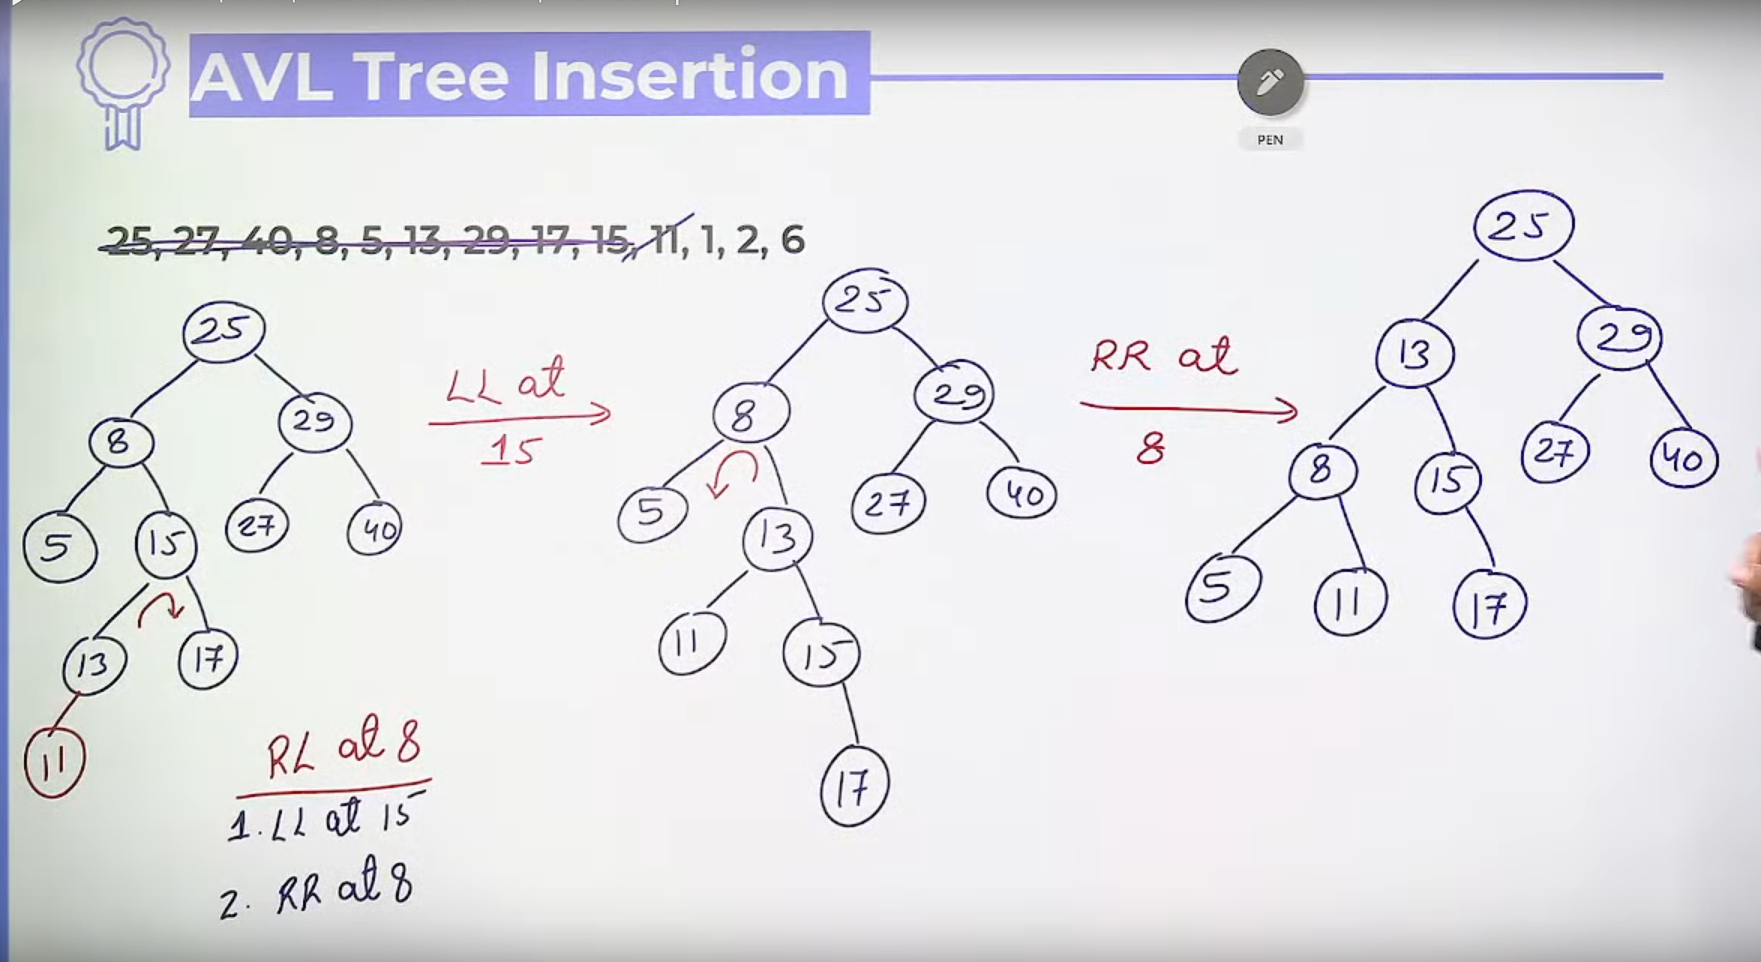 AVL Tree Insertion
PEN
25, 27, 40, 8, 5, 13, 29, 17, 15, 11, 1, 2, 6
25
8
29
5
15
27
40
13
17
11
RL at 8
1. LL at 15
2. RR at 8
LL at
15
25
8
29
5
13
27
40
11
15
17
RR at
8
25
13
29
8
15
27
40
5
11
17